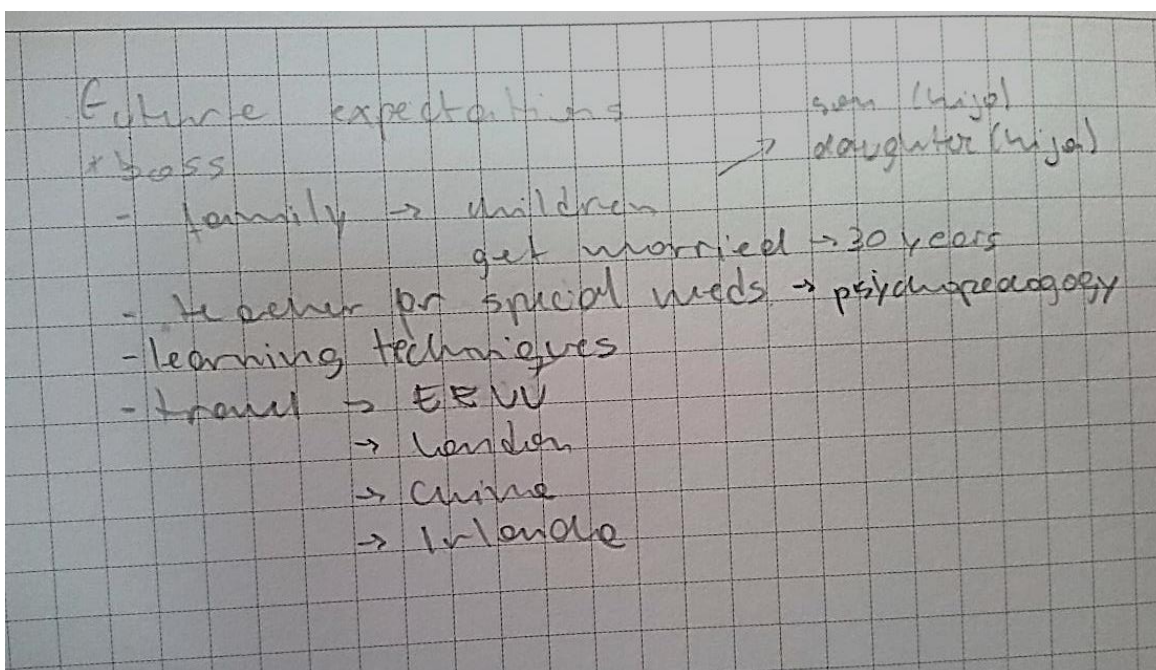 Future expectations
son (hijo)
* boss
→ daughter (hija)
- family → children
get worried → 30 years
- teacher of special needs → psychopedagogy
- learning techniques
- travel → EEUU
→ London
→ China
→ Irlanda